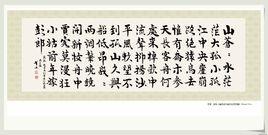 山蒼〻水茫
茫大孤小孤
江中央崖崩
路絕猿鳥去
惟有喬木參
天長客舟何
處來棹歌中
流聲抑揚沙
平風軟望不
到孤山久與
船低昂峩〻
兩烟鬟曉鏡
開新妝舟中
賈客莫漫狂
小姑前年嫁
彭郎